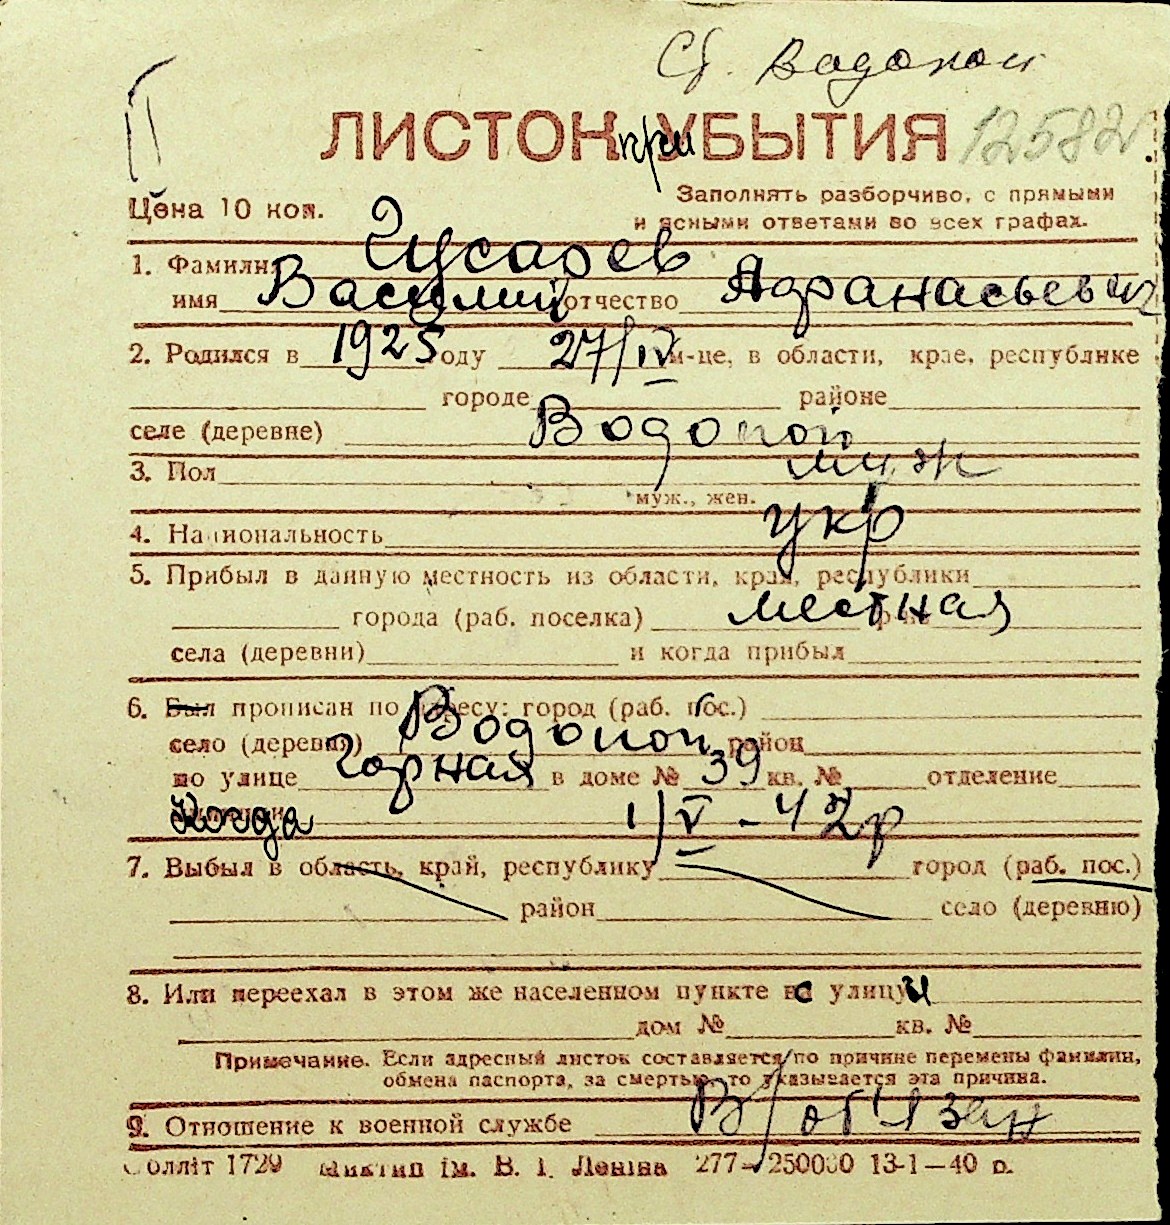 Ст. Водопой
ЛИСТОК при УБЫТИЯ 12582
Цена 10 коп. Заполнять разборчиво, с прямыми
и ясными ответами во всех графах.
1. Фамилия Гусарев
имя Василий отчество Афанасьевич
2. Родился в 1925 году 27/IV м-це, в области, крае, республике
городе районе
селе (деревне) Водопой
3. Пол муж
муж., жен.
4. Национальность укр
5. Прибыл в данную местность из области, края, республики
города (раб. поселка) местная р-на
села (деревни) и когда прибыл
6. Был прописан по адресу: город (раб. пос.)
село (деревня) Водопой район
по улице Горная в доме № 39 кв. № отделение
милиции Когда 1/V - 42 г
7. Выбыл в область, край, республику город (раб. пос.)
район село (деревню)
8. Или переехал в этом же населенном пункте с улицы
дом № кв. №
Примечание. Если адресный листок составляется по причине перемены фамилии,
обмена паспорта, за смертью, то указывается эта причина.
9. Отношение к военной службе В/обязан
олліт 1729 Миктип ім. В. І. Леніна 277—250000 13-1—40 р.